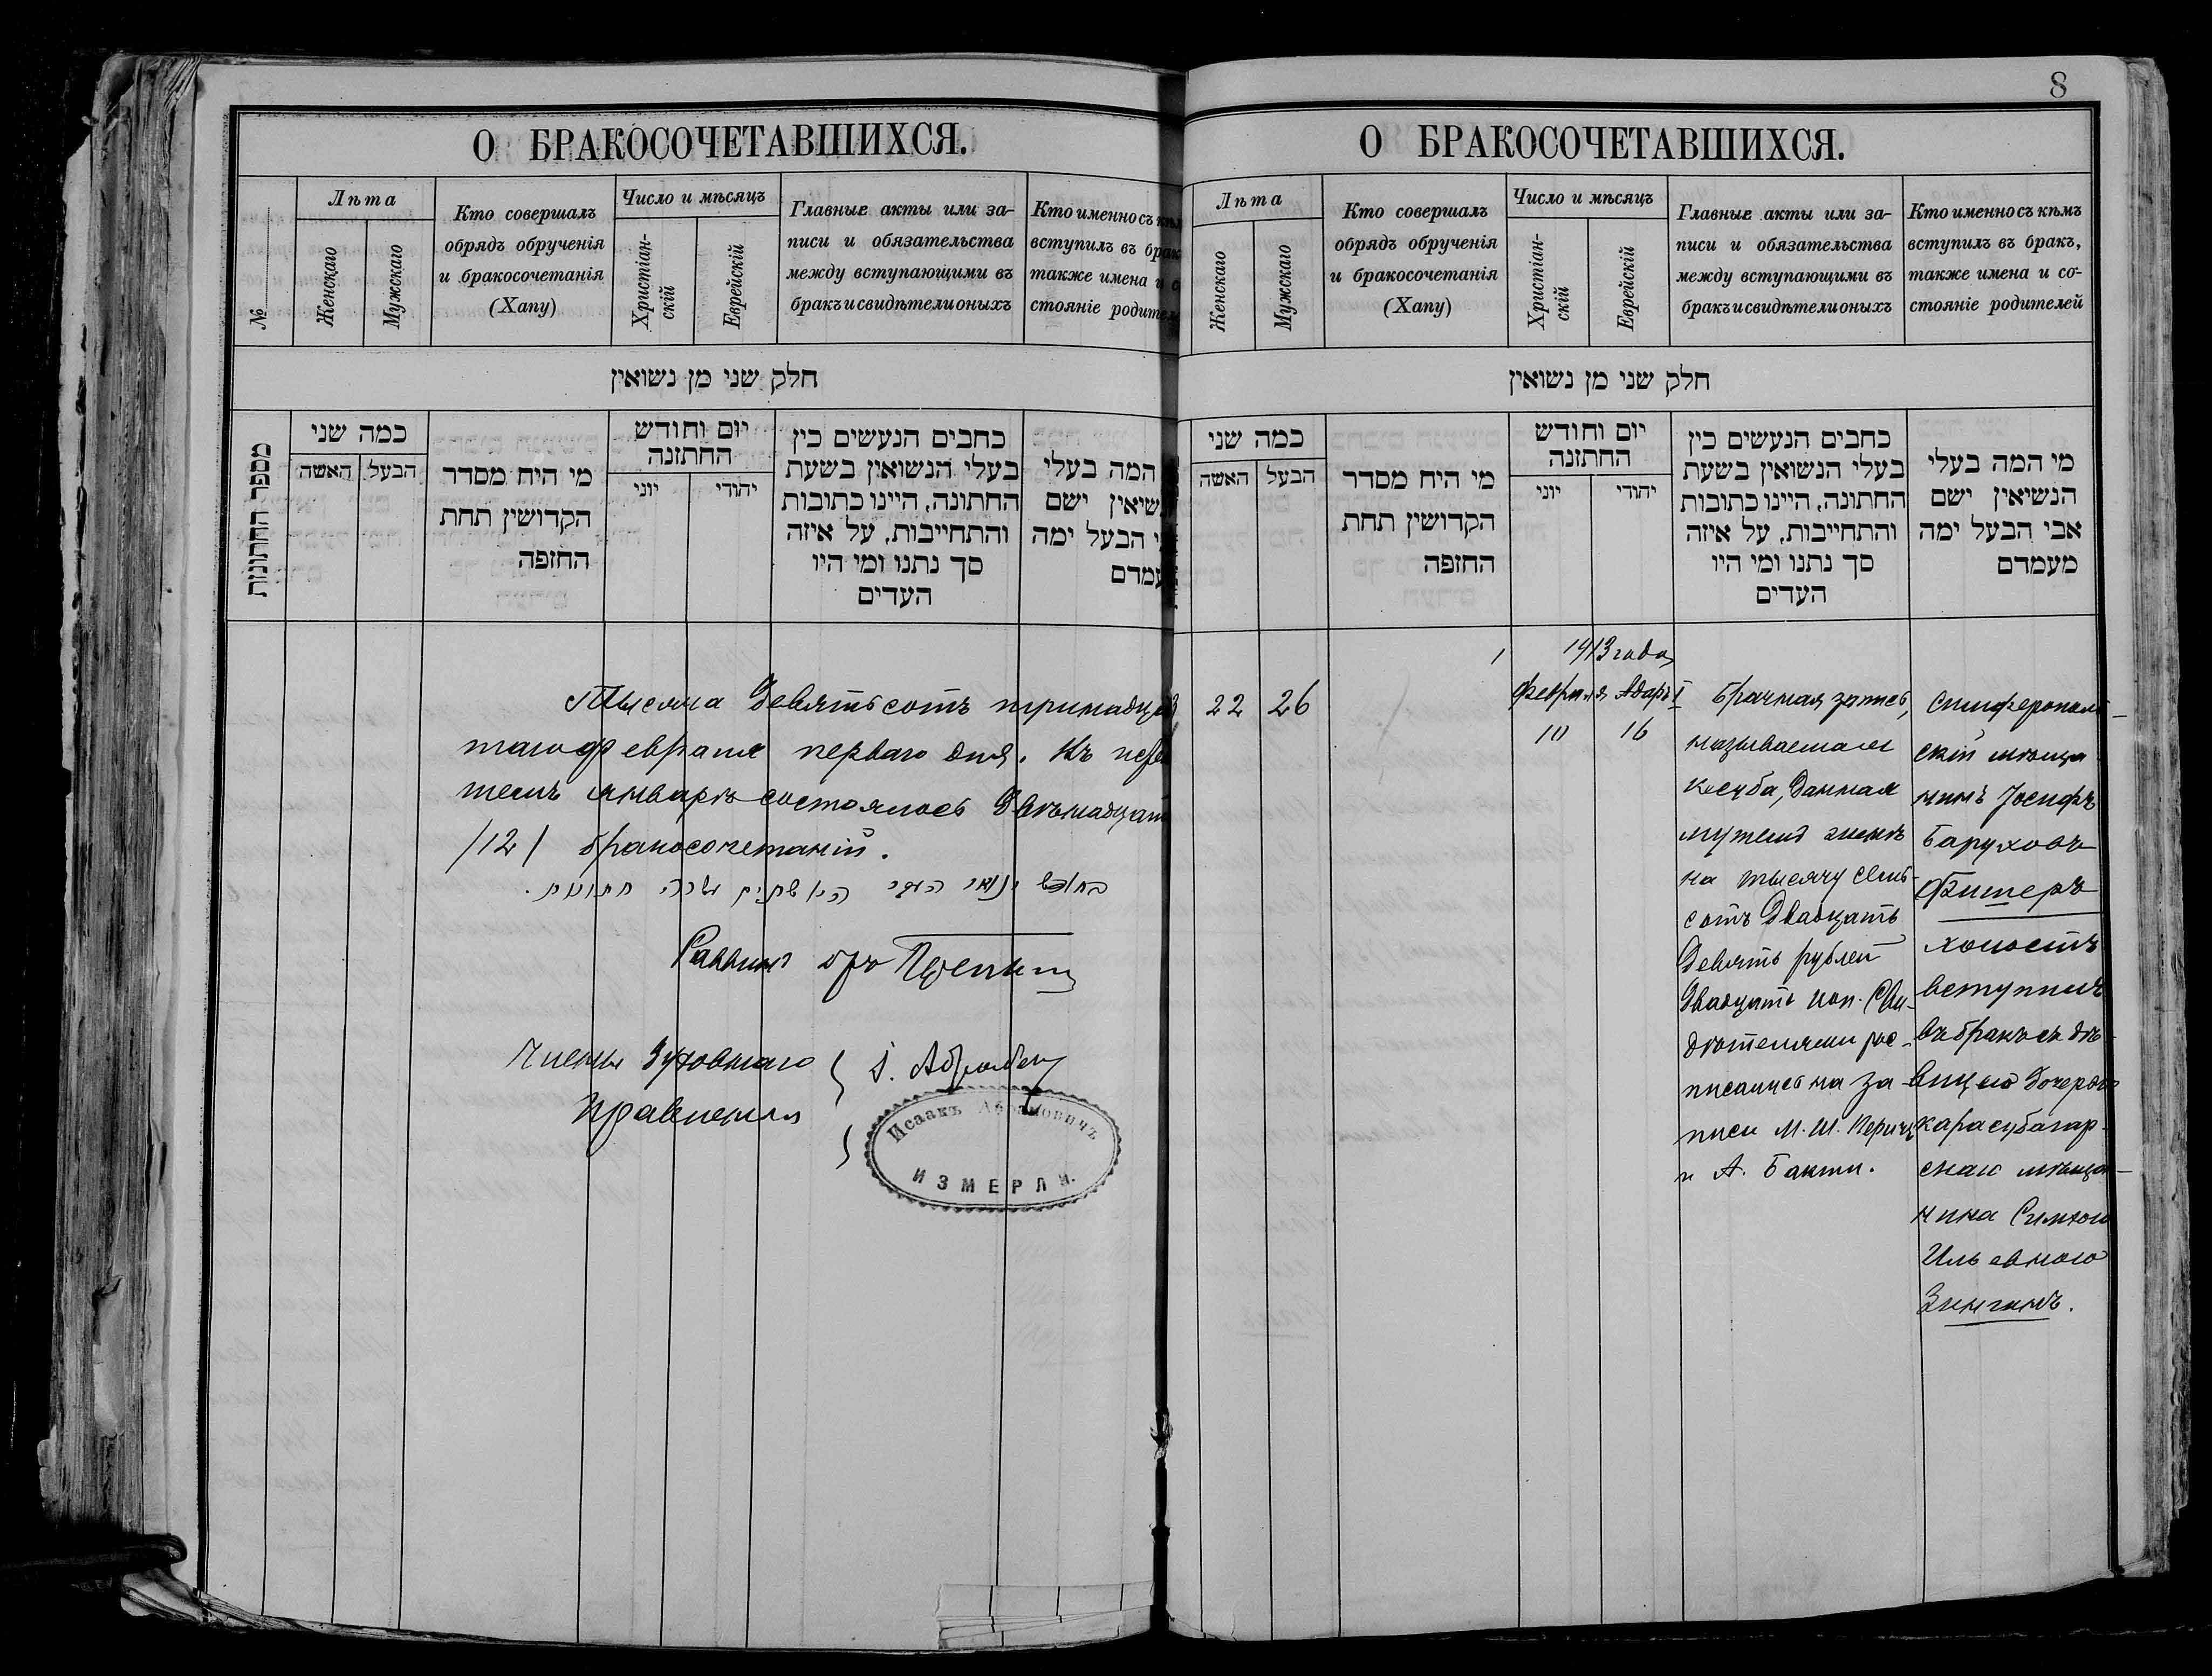 8
О БРАКОСОЧЕТАВШИХСЯ.
№
Лѣта
Женскаго
Мужскаго
Кто совершалъ
обрядъ обрученія
и бракосочетанія
(Хапу)
Число и мѣсяцъ
Христіан-
скій
Еврейскій
Главные акты или за-
писи и обязательства
между вступающими въ
бракъ и свидѣтели оныхъ
Кто именно съ кѣм
вступилъ въ брак
также имена и с
стояніе родител
חלק שני מן נשואין
מספר החתונות
כמה שני
האשה
הבעל
מי היח מסדר
הקדושין תחת
החזפה
יום וחודש
החתזנה
יוני
יהודי
כחבים הנעשים כין
בעלי הנשואין בשעת
החתונה, היינו כתובות
והתחייבות, על איזה
סך נתנו ומי היו
העדים
המה בעלי
שיאין ישם
י הבעל ימה
עמדם
Тысяча девятьсотъ тринадца
таго февраля перваго дня. Къ
январѣ состоялось двѣнадцат
/12/ бракосочетаній.
Раввинъ
Члены духовнаго
правленія
Исаакъ Абрамовичъ
ИЗМЕРЛИ.
О БРАКОСОЧЕТАВШИХСЯ.
Лѣта
Женскаго
Мужскаго
Кто совершалъ
обрядъ обрученія
и бракосочетанія
(Хапу)
Число и мѣсяцъ
Христіан-
скій
Еврейскій
Главные акты или за-
писи и обязательства
между вступающими въ
бракъ и свидѣтели оныхъ
Кто именно съ кѣмъ
вступилъ въ бракъ,
также имена и со-
стояніе родителей
חלק שני מן נשואין
כמה שני
האשה
הבעל
מי היח מסדר
הקדושין תחת
החזפה
יום וחודש
החתזנה
יוני
יהודי
כחבים הנעשים כין
בעלי הנשואין בשעת
החתונה, היינו כתובות
והתחייבות, על איזה
סך נתנו ומי היו
העדים
מי המה בעלי
הנשיאין ישם
אבי הבעל ימה
מעמדם
22
26
1913 года
Февраля
10
Адаръ I
16
Брачная запись,
называемая
кесуба, данная
мужемъ женѣ
на тысячу семь-
сотъ двадцать
девять рублей
двадцать коп. Сви-
дѣтелями рос-
писались на за-
писи М. Ш.
и А. Бакши.
Симферополь-
скій мѣща-
нинъ Іосифъ
Баруховъ
Фишеръ
холостъ
вступилъ
въ бракъ съ дѣ-
вицею дочерью
карасубазар-
скаго мѣща-
нина Симхою
Ильевною